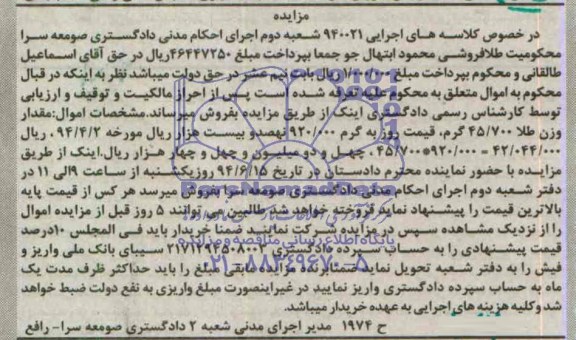 مزایده
در خصوص کلاسه های اجرایی ۹۴۰۰۲۱ شعبه دوم اجرای احکام مدنی دادگستری صومعه سرا
محکومیت طلافروشی محمود ابتهال جو جمعا بپرداخت مبلغ ۴۶۴۴۷۲۵۰ریال در حق آقای اسماعیل
طالقانی و محکوم بپرداخت مبلغ ریال بابت نیم عشر در حق دولت میباشد نظر به اینکه در قبال
محکوم به اموال متعلق به محکوم علیه تعرفه شده است پس از احراز مالکیت و توقیف و ارزیابی
توسط کارشناس رسمی دادگستری اینک از طریق مزایده بفروش میرساند.مشخصات اموال:مقدار
وزن طلا ۴۵/۷۰۰ گرم، قیمت روز به گرم ۹۲۰/۰۰۰ نهصدو بیست هزار ریال مورخه ۹۴/۴/۲ ، ریال
۴۲/۰۴۴/۰۰۰ = ۹۲۰/۰۰۰*۴۵/۷۰۰ ، چهل و دو میلیون و چهل و چهار هزار ریال.اینک از طریق
مزایده با حضور نماینده محترم دادستان در تاریخ ۹۴/۶/۱۵ روز یکشنبه از ساعت ۹الی ۱۱ در
دفتر شعبه دوم اجرای احکام مدنی دادگستری صومعه سرا بفروش میرسد هر کس از قیمت پایه
بالاترین قیمت را پیشنهاد نماید فروخته خواهد شد طالبین می توانند ۵ روز قبل از مزایده اموال
را از نزدیک مشاهده سپس در مزایده شرکت نمایند ضمنا خریدار باید فی المجلس ۱۰درصد
قیمت پیشنهادی را به حساب سپرده دادگستری سیبای بانک ملی واریز و
فیش را به دفتر شعبه تحویل نماید ضمنا برنده مزایده مابقی مبلغ را باید حداکثر ظرف مدت یک
ماه به حساب سپرده دادگستری واریز نمایید در غیراینصورت مبلغ واریزی به نفع دولت ضبط خواهد
شد وکلیه هزینه های اجرایی به عهده خریدار میباشد.
ح ۱۹۷۴ مدیر اجرای مدنی شعبه ۲ دادگستری صومعه سرا- رافع
پایگاه اطلاع رسانی مناقصه و مزایده
۰۲۱-۸۸۳۴۹۶۷۰-۵